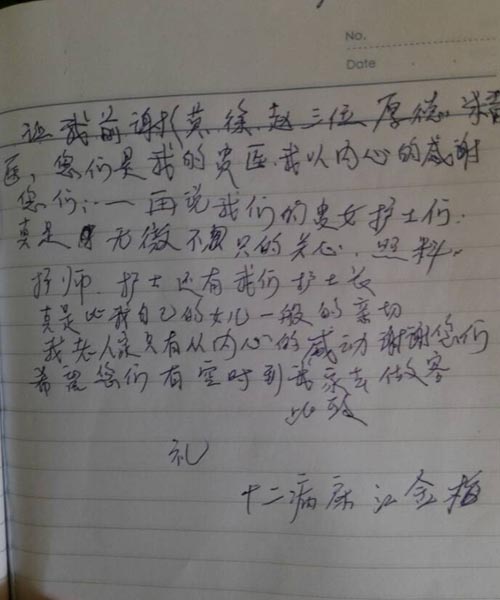 No.
Date
让我前谢找黄.徐.赵三位厚德.
医,您们是我的贵医.我以内心的感谢
您们:一再说我们的贵女护士们.
真是无微不只的关心.照料.
护师.护士还有我们护士长
真是比我自己的女儿一般的亲切
我老人家只有从内心的感动谢谢您们
希望您们有空时到我家去做客
此致
礼
十二病床 江金梅